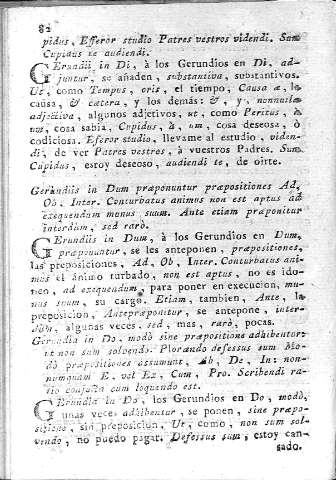 82
pidus, Efferor studio Patres vestros videndi. Sum
Cupidus te audiendi.
GErundii in Di, à los Gerundios en Di, ad-
juntur, se añaden, substantiva, substantivos.
Ut, como Tempus, oris, el tiempo, Causa æ, la
causa, & cætera, y los demás: &, y, nonnulla
adjectiva, algunos adjetivos, ut, como Peritus, à
nos, cosa sabia, Cupidus, à, um, cosa deseosa, ò
codiciosa. Efferor studio, llevame al estudio, viden-
di, de ver Patres vestros, à vuestros Padres. Sum
Cupidus, estoy deseoso, audiendi te, de oirte.
Gerundiis in Dum præponuntur præpositiones Ad,
Ob, Inter. Conturbatus animus non est aptus ad
exequendum munus suum. Ante etiam præponitur
interdum, sed rarò.
GErundiis in Dum, à los Gerundios en Dum,
præponuntur, se les anteponen, præpositiones,
las preposiciones, Ad, Ob, Inter. Conturbatus ani-
mus el ánimo turbado, non est aptus, no es ido-
neo, ad exequendum, para poner en execucion, mu-
nus suum, su cargo. Etiam, tambien, Ante, la
preposicion, Anteponitur, se antepone, inter-
dum, algunas veces, sed, mas, rarò, pocas.
Gerundia in Do, modò sine præpositione adhibentur:
ut non sum solvendo. Plorando defessus sum. Mo-
dò præpositiones assumunt, Ab, De, In: non-
nunquam E, vel Ex, Cum, Pro. Scribendi ra-
tio conjuncta cum loquendo est.
GErundia in Do, los Gerundios en Do, modò,
unas veces adhibentur, se ponen, sine præpo-
sitione, sin preposicion. Ut, como, non sum sol-
vendo, no puedo pagar. Defessus sum, estoy can-
sado.